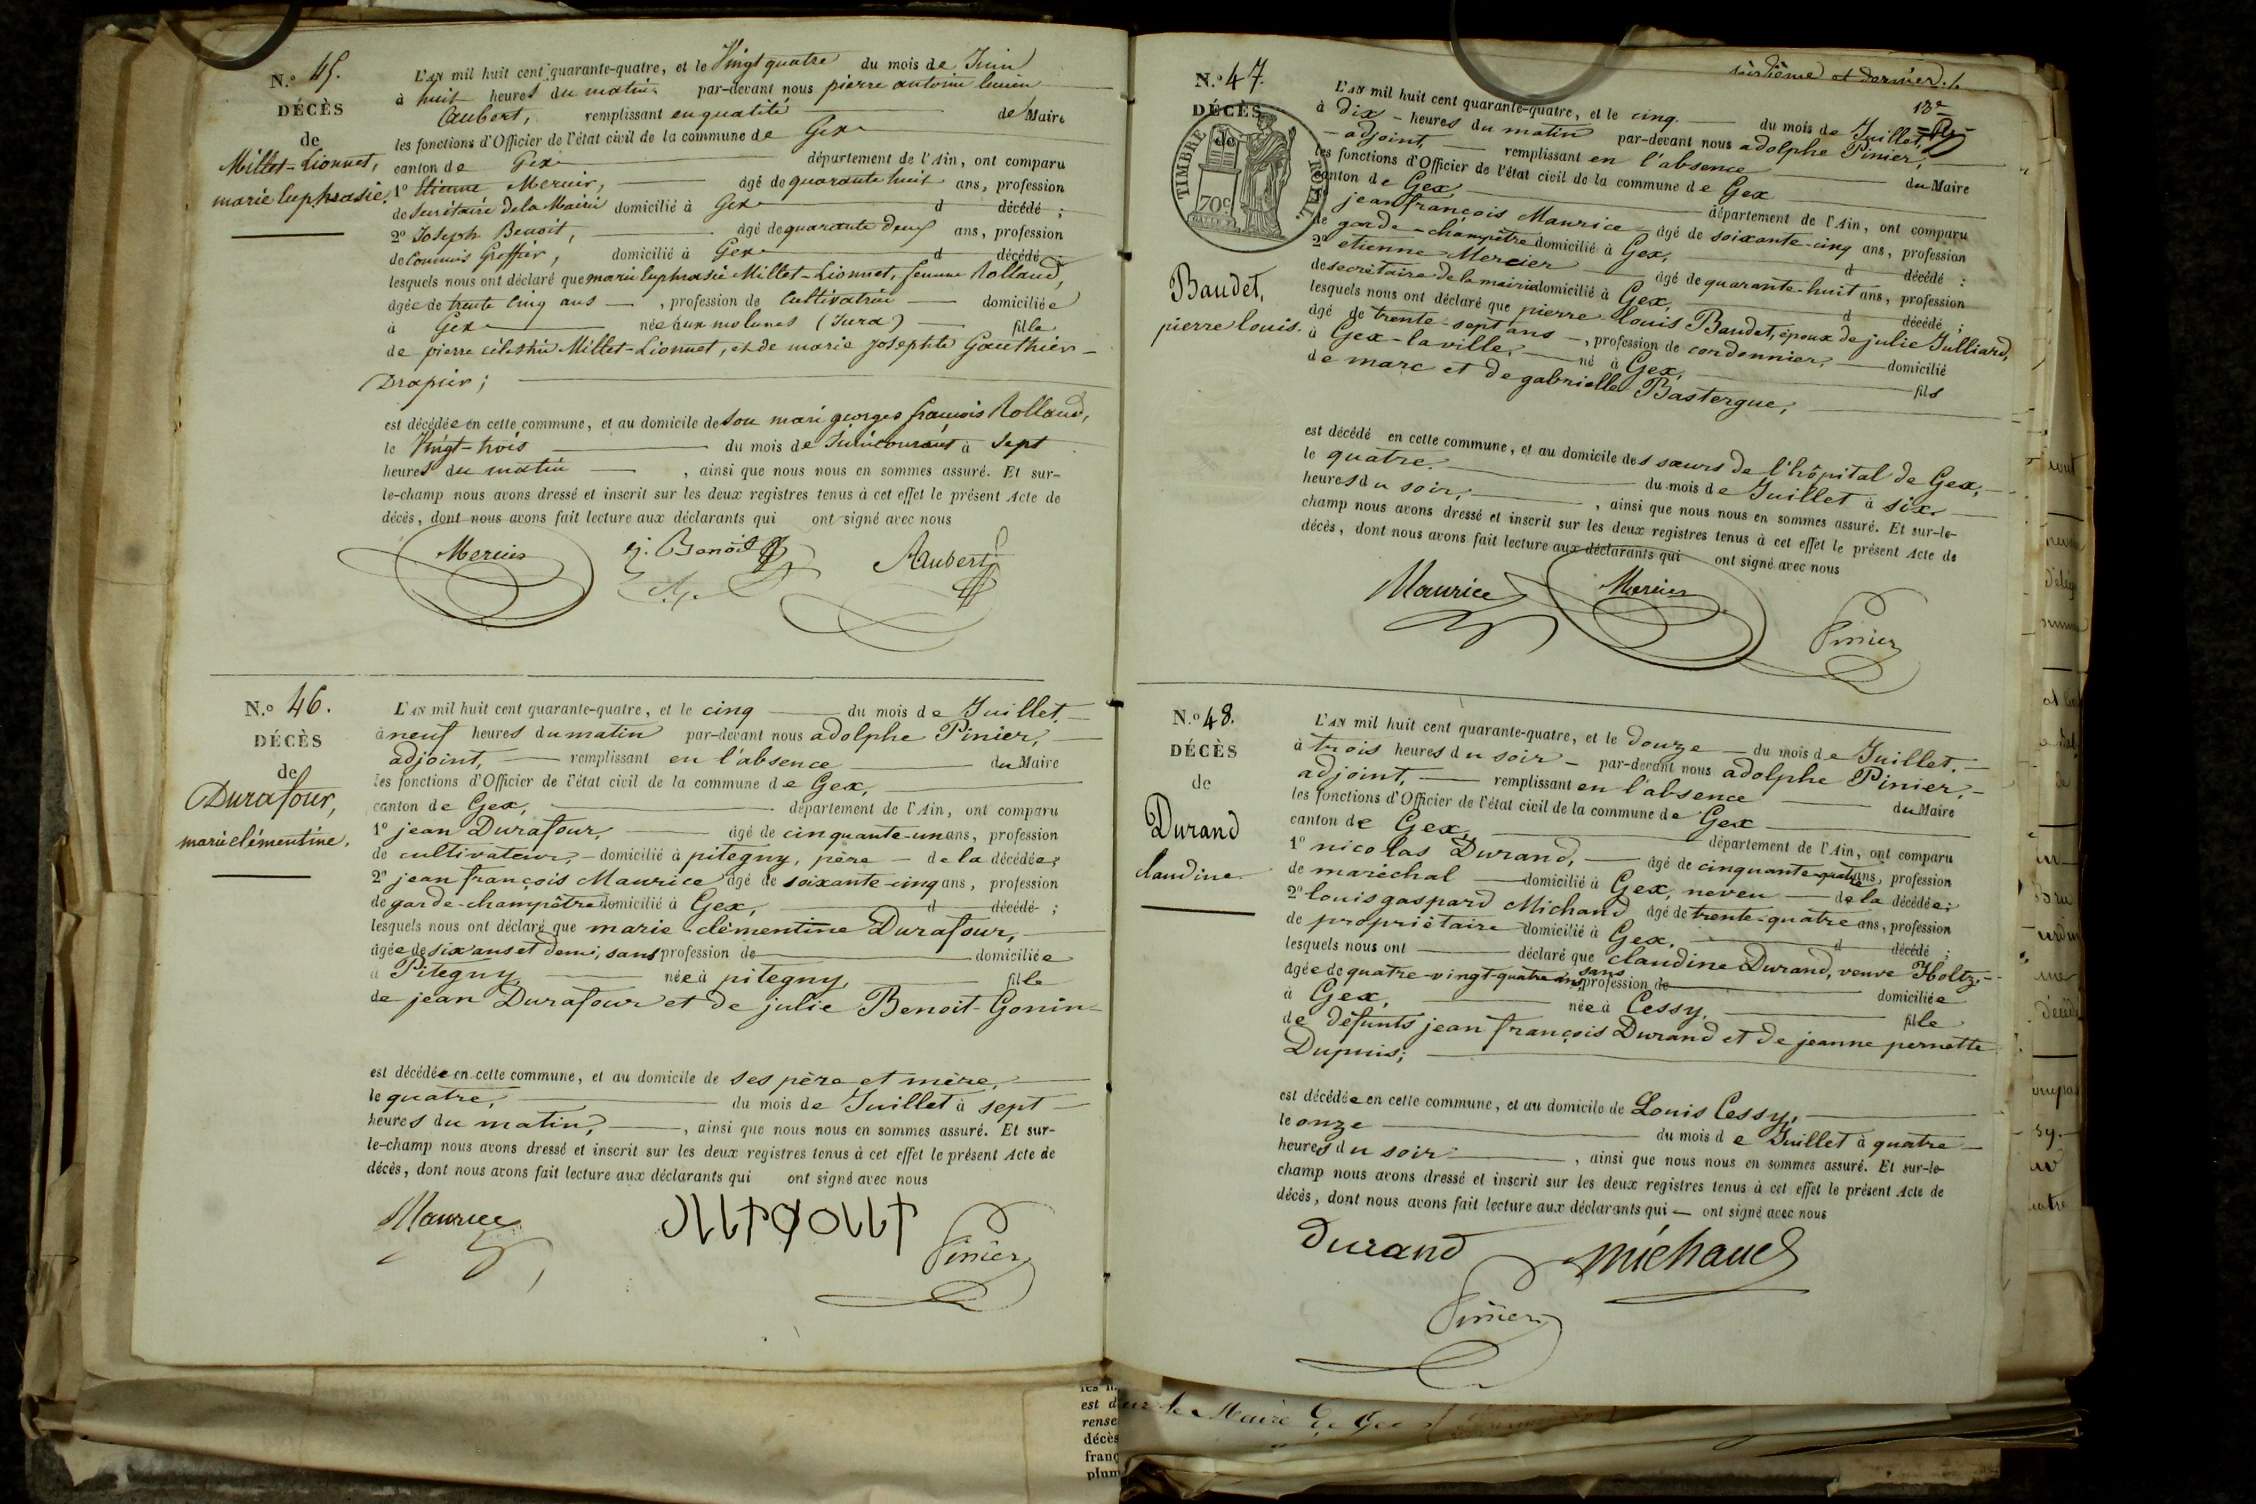 N.º 45.
DÉCÈS
de
Millet-Lionnet,
marie Euphrasie.
L'AN mil huit cent quarante-quatre, et le Vingt quatre du mois de Juin
à huit heures du matin par-devant nous pierre antoine lucien
Aubert, remplissant en qualité de Maire
les fonctions d'Officier de l'état civil de la commune de Gex
canton de Gex département de l'Ain, ont comparu
1º Etienne Mercier, âgé de quarante huit ans, profession
de Secrétaire de la Mairie domicilié à Gex d décédé ;
2º Joseph Benoit, âgé de quarante deux ans, profession
de Commis Greffier, domicilié à Gex d décédé ;
lesquels nous ont déclaré que marie Euphrasie Millet-Lionnet, femme Rolland,
âgée de trente cinq ans , profession de Cultivatrice domiciliée
à Gex née aux molunes (Jura) fille
de pierre célestin Millet-Lionnet, et de marie josephte Gauthier-
Drapier ;
est décédée en cette commune, et au domicile de Son mari georges françois Rolland,
le Vingt-trois du mois de Juin courant à Sept
heures du matin , ainsi que nous nous en sommes assuré. Et sur-
le-champ nous avons dressé et inscrit sur les deux registres tenus à cet effet le présent Acte de
décès, dont nous avons fait lecture aux déclarants qui ont signé avec nous
Mercier j. Benoit Aubert
N.º 46.
DÉCÈS
de
Durafour,
marie clémentine.
L'AN mil huit cent quarante-quatre, et le cinq du mois de Juillet,
à neuf heures du matin par-devant nous adolphe Pinier,
adjoint, remplissant en l'absence du Maire
les fonctions d'Officier de l'état civil de la commune de Gex,
canton de Gex, département de l'Ain, ont comparu
1º jean Durafour, âgé de cinquante-un ans, profession
de cultivateur, domicilié à pitegny, père de la décédée ;
2º jean françois Maurice âgé de soixante-cinq ans, profession
de garde-champêtre domicilié à Gex, d décédé ;
lesquels nous ont déclaré que marie clémentine Durafour,
âgée de six ans et demi, sans profession de domiciliée
à Pitegny, née à pitegny, fille
de jean Durafour et de julie Benoit-Gonin
est décédée en cette commune, et au domicile de ses père et mère,
le quatre, du mois de Juillet à sept
heures du matin, , ainsi que nous nous en sommes assuré. Et sur-
le-champ nous avons dressé et inscrit sur les deux registres tenus à cet effet le présent Acte de
décès, dont nous avons fait lecture aux déclarants qui ont signé avec nous
Maurice Pinier
treizième et dernier./.
13e
N.º 47.
DÉCÈS
de
TIMBRE ROYAL
70c
Baudet,
pierre louis.
L'AN mil huit cent quarante-quatre, et le cinq du mois de Juillet,
à Dix heures du matin par-devant nous adolphe Pinier,
adjoint, remplissant en l'absence du Maire
les fonctions d'Officier de l'état civil de la commune de Gex
canton de Gex, département de l'Ain, ont comparu
jean françois Maurice âgé de soixante-cinq ans, profession
de garde-champêtre domicilié à Gex, d décédé ;
2º etienne Mercier âgé de quarante-huit ans, profession
de secrétaire de la mairie domicilié à Gex, d décédé ;
lesquels nous ont déclaré que pierre louis Baudet, époux de julie Julliard,
âgé de trente-sept ans , profession de cordonnier, domicilié
à Gex-la ville, né à Gex, fils
de marc et de gabrielle Bastergue,
est décédé en cette commune, et au domicile des sœurs de l'hôpital de Gex,
le quatre, du mois de Juillet à six
heures du soir, , ainsi que nous nous en sommes assuré. Et sur-le-
champ nous avons dressé et inscrit sur les deux registres tenus à cet effet le présent Acte de
décès, dont nous avons fait lecture aux déclarants qui ont signé avec nous
Maurice Mercier Pinier
N.º 48.
DÉCÈS
de
Durand
claudine
L'AN mil huit cent quarante-quatre, et le douze du mois de Juillet,
à trois heures du soir par-devant nous adolphe Pinier,
adjoint, remplissant en l'absence du Maire
les fonctions d'Officier de l'état civil de la commune de Gex
canton de Gex, département de l'Ain, ont comparu
1º nicolas Durand, âgé de cinquante-quatre ans, profession
de maréchal domicilié à Gex, neveu de la décédée ;
2º louis gaspard Michaud âgé de trente-quatre ans, profession
de propriétaire domicilié à Gex, d décédé ;
lesquels nous ont déclaré que claudine Durand, veuve Holtz,
âgée de quatre-vingt-quatre ans, sans profession de domiciliée
à Gex, née à Cessy, fille
de défunts jean françois Durand et de jeanne pernette
Dupuis ;
est décédée en cette commune, et au domicile de Louis Cessy,
le onze du mois de Juillet à quatre
heures du soir , ainsi que nous nous en sommes assuré. Et sur-le-
champ nous avons dressé et inscrit sur les deux registres tenus à cet effet le présent Acte de
décès, dont nous avons fait lecture aux déclarants qui ont signé avec nous
Durand Michaud
Pinier